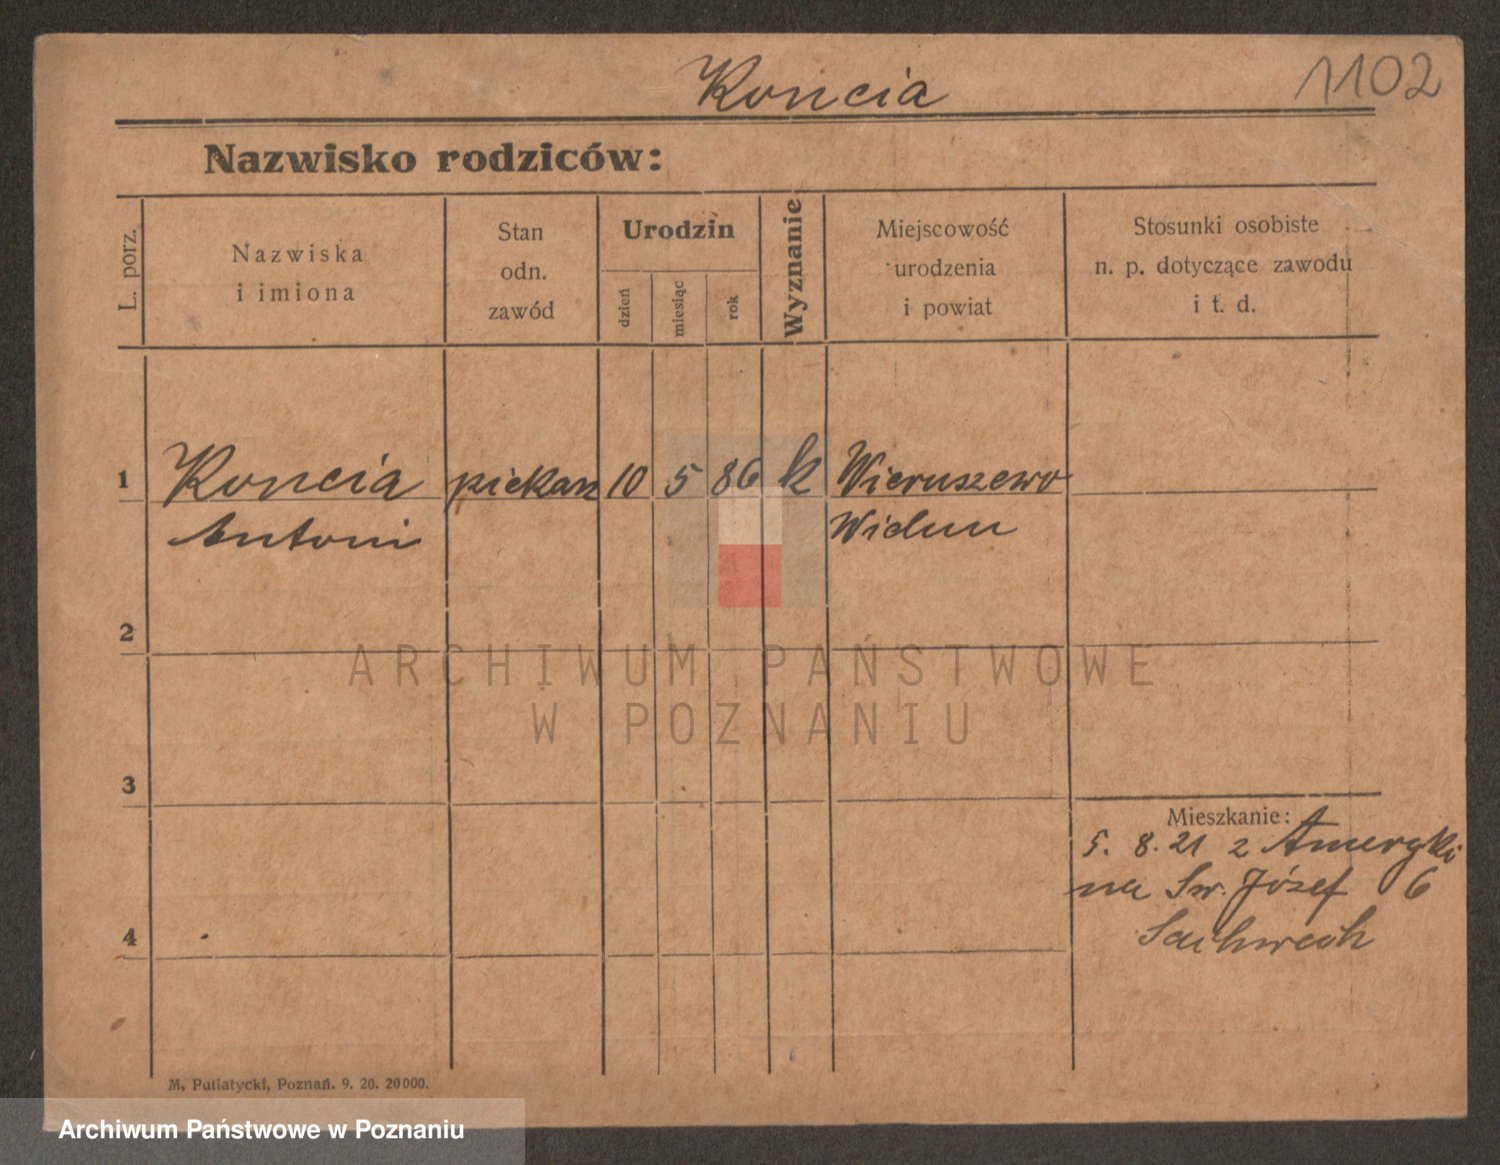 Koncia
1102
Nazwisko rodziców:
L. porz.
Nazwiska
i imiona
Stan
odn.
zawód
Urodzin
dzień
miesiąc
rok
Wyznanie
Miejscowość
urodzenia
i powiat
Stosunki osobiste
n. p. dotyczące zawodu
i t. d.
1 Koncia piekarz 10 5 86 k Wieruszewo
Antoni Wielun
2
ARCHIWUM PAŃSTWOWE
W POZNANIU
3
Mieszkanie:
5. 8. 21 z Ameryki
na Św. Józef 6
4
M. Putiatycki, Poznań. 9. 20. 20000.
Archiwum Państwowe w Poznaniu